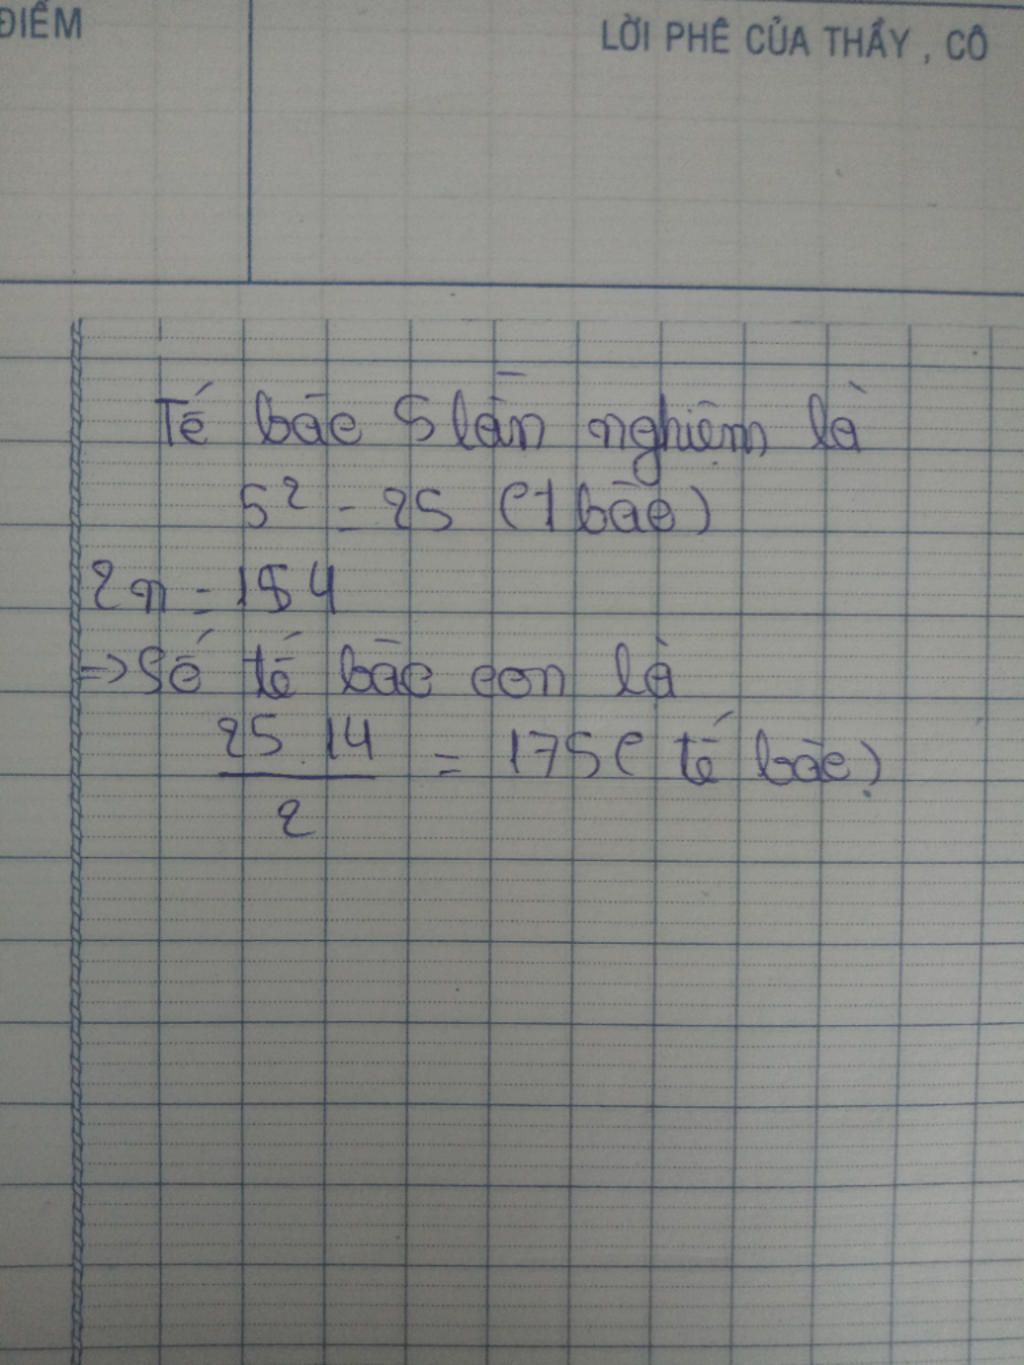 ĐIỂM
LỜI PHÊ CỦA THẦY , CÔ
Tế bào 5 lần nghiệm là
5² = 25 (1 bào)
2n = 154
=> Số tế bào con là
25 14 / 2 = 175 ( tế bào)